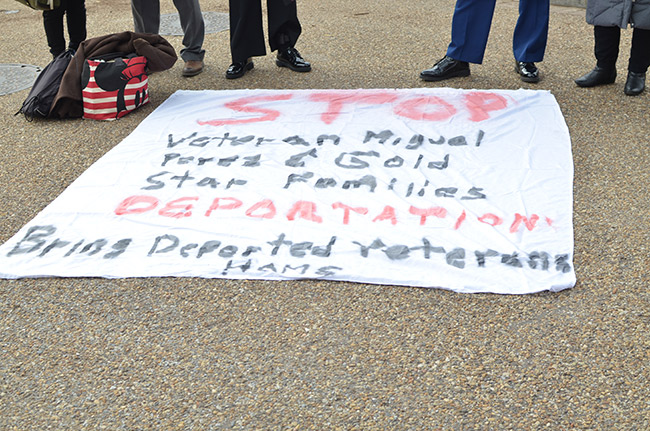 STOP
Veteran Miguel
Perez & Gold
Star Families
DEPORTATION!
Bring Deported Veterans
HOMS